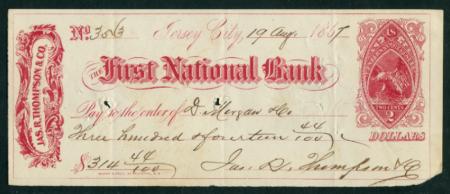 No. 353 Jersey City, 19 Aug 1867
JAS. R. THOMPSON & CO.
THE First National Bank
Pay to the order of D. Morgan & Co
Three hundred & fourteen 44/100
DOLLARS
$ 314 44/100 Jas. R. Thompson & Co
TWO CENTS
2